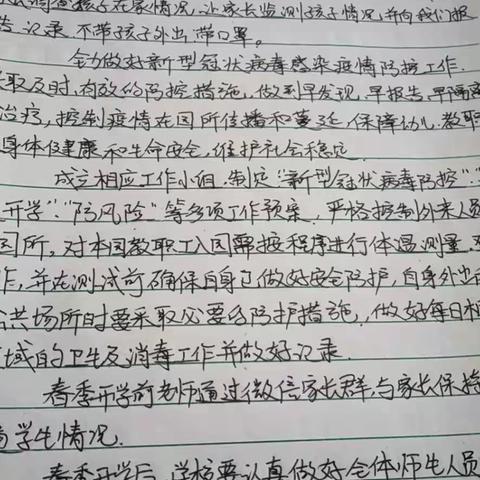 孩子在家情况,让家长监测孩子情况,并向我们报
告 记录 不带孩子外出,带口罩。
全力做好新型冠状病毒感染疫情防控工作.
取及时,有效的防控措施,做到早发现,早报告,早隔离
治疗,控制疫情在园所传播和蔓延,保障幼儿.教职
身体健康和生命安全,维护社会稳定
成立相应工作小组.制定“新型冠状病毒防控”“
开学”“防风险”等多项工作预案,严格控制外来人员
园所,对本园教职工入园需按程序进行体温测量.
作,并在测试前确保自身已做好安全防护,自身外出
公共场所时要采取必要的防护措施,做好每日
域的卫生及消毒工作并做好记录.
春季开学前老师通过微信家长群,与家长保持
学生情况.
春季开学后,学校要认真做好全体师生人员